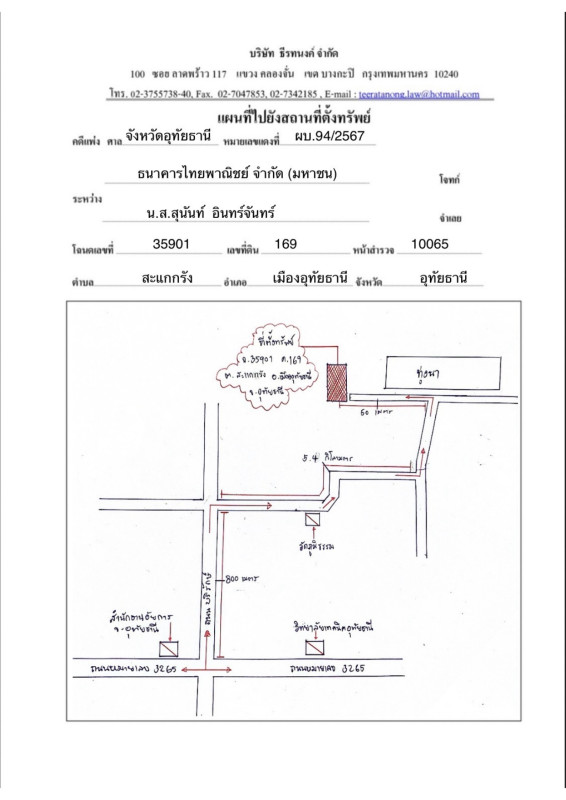 บริษัท ธีรทนงค์ จำกัด
100 ซอย ลาดพร้าว 117 แขวง คลองจั่น เขต บางกะปิ กรุงเทพมหานคร 10240
โทร. 02-3755738-40, Fax. 02-7047853, 02-7342185 , E-mail : teeratanong.law@hotmail.com
แผนที่ไปยังสถานที่ตั้งทรัพย์
คดีแพ่ง ศาล จังหวัดอุทัยธานี หมายเลขแดงที่ ผบ.94/2567
ธนาคารไทยพาณิชย์ จำกัด (มหาชน) โจทก์
ระหว่าง
น.ส.สุนันท์ อินทร์จันทร์ จำเลย
โฉนดเลขที่ 35901 เลขที่ดิน 169 หน้าสำรวจ 10065
ตำบล สะแกกรัง อำเภอ เมืองอุทัยธานี จังหวัด อุทัยธานี
ที่ตั้งทรัพย์
ฉ.35901 ด.169
ต.สะแกกรัง อ.เมืองอุทัยธานี
จ.อุทัยธานี
ทุ่งนา
50 เมตร
5.4 กิโลเมตร
วัดภูมิธรรม
800 เมตร
ถนน บริรักษ์
สำนักงานอัยการ
จ.อุทัยธานี
วิทยาลัยเทคนิคอุทัยธานี
ถนนหมายเลข 3265
ถนนหมายเลข 3265